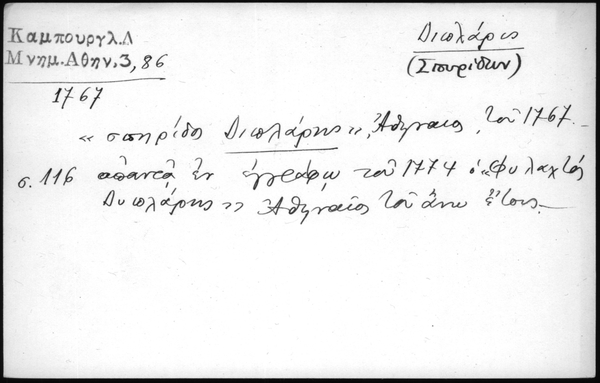 Καμπουργλ.Δ
Μνημ.Αθην.3,86
Διπλάρης
(Σπυρίδων)
1767
« σπηρίδος Διπλάρης », Ἀθηναῖος τοῦ 1767.
σ.116 ἀπαντᾷ ἐν ἐγγράφῳ τοῦ 1774 ὁ «Φυλαχτός
Διπλάρης » Ἀθηναῖος τοῦ ἄνω ἔτους.